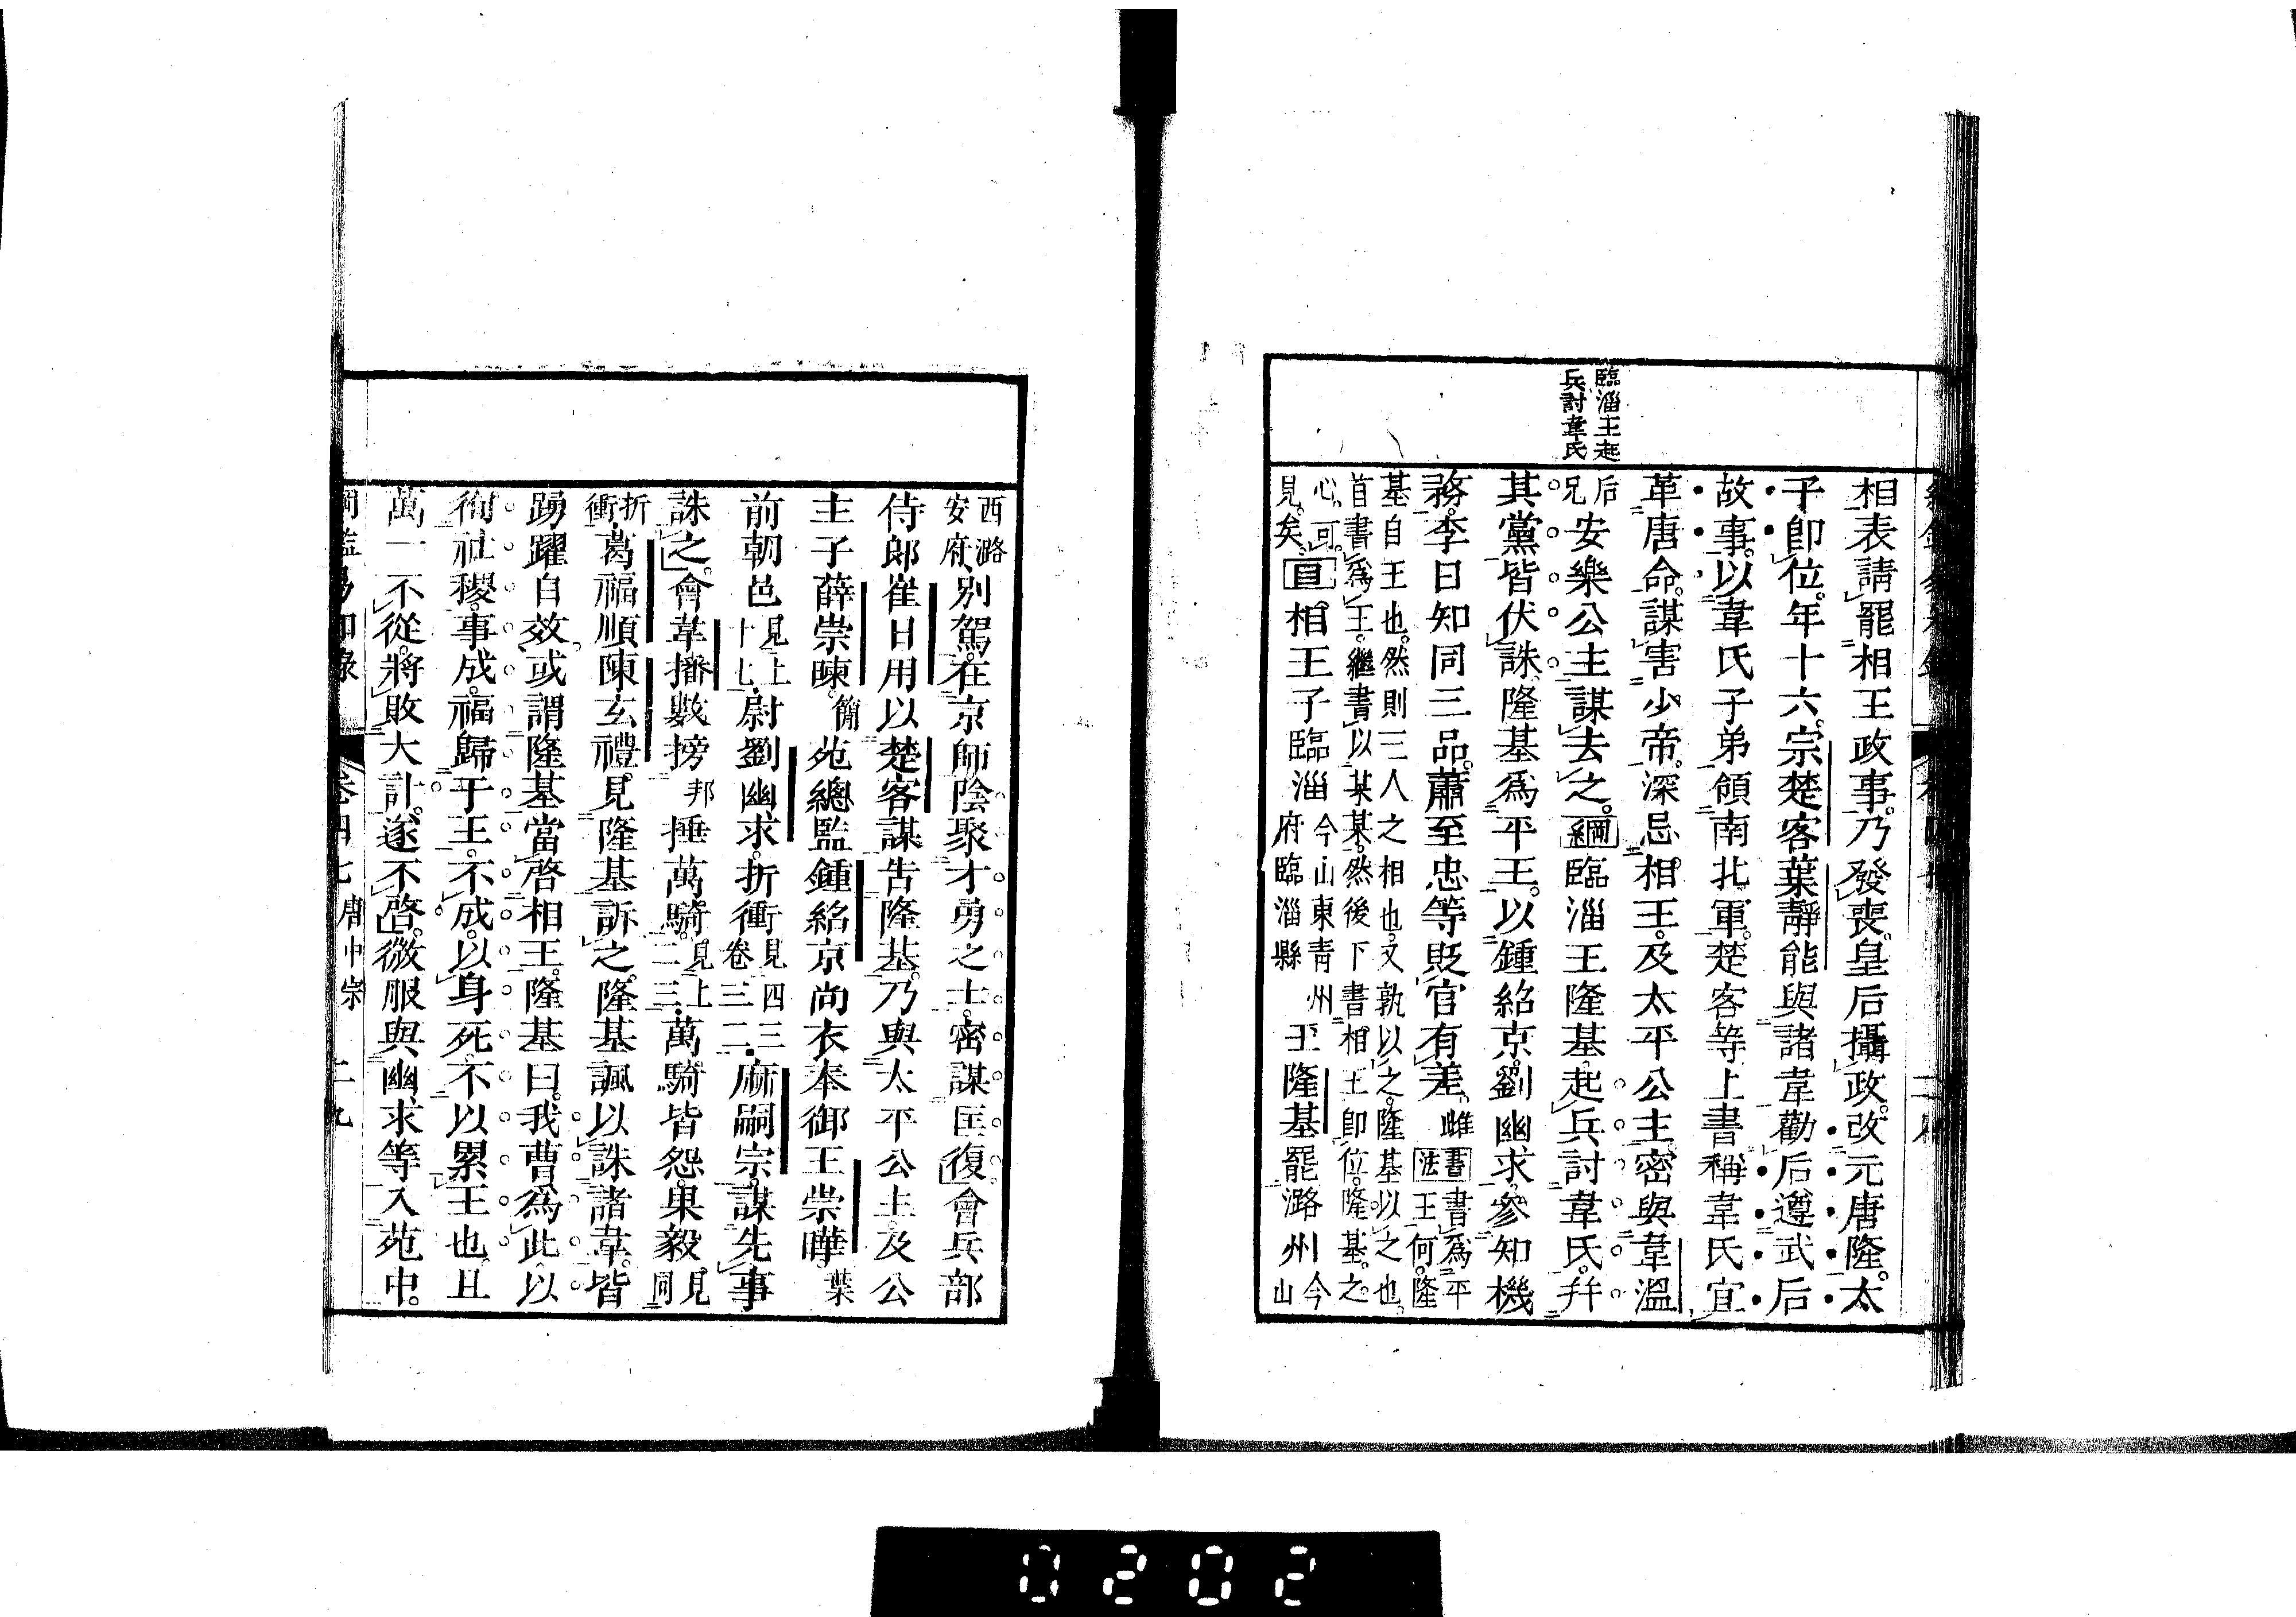 臨淄王起
兵討韋氏
相表請罷相王政事。乃發喪。皇后攝政。改元唐隆。太
子卽位。年十六。宗楚客葉靜能與諸韋勸后遵武后
故事。以韋氏子弟領南北軍。楚客等上書稱韋氏宜
革唐命。謀害少帝。深忌相王。及太平公主。密與韋溫
后兄安樂公主謀去之。綱臨淄王隆基。起兵討韋氏。幷
其黨皆伏誅。隆基爲平王。以鍾紹京。劉幽求。參知機
務。李日知同三品。蕭至忠等貶官有差。雌書法書爲平王何。隆
基自王也。然則三人之相也。又孰以之。隆基以之也。
首書爲王。繼書以某某。然後下書相王卽位。隆基之
心。可見矣。目相王子臨淄今山東靑州府臨淄縣王隆基罷潞州今山
西潞安府別駕。在京師陰聚才勇之士。密謀匡復。會兵部
侍郎崔日用以楚客謀告隆基。乃與太平公主。及公
主子薛崇暕。簡苑總監鍾紹京尚衣奉御王崇曄。葉
前朝邑見上十七尉劉幽求。折衝見四三卷三二麻嗣宗。謀先事
誅之。會韋播數搒邦捶萬騎。見上二三萬騎皆怨。果毅。見同
折衝葛福順陳玄禮。見隆基訴之。隆基諷以誅諸韋。皆
踴躍自效。或謂隆基當啓相王。隆基曰。我曹爲此。以
徇社稷。事成。福歸于王。不成。以身死。不以累王也。且
萬一不從。將敗大計。遂不啓。微服與幽求等入苑中。
卷四七 唐中宗 二九
0202